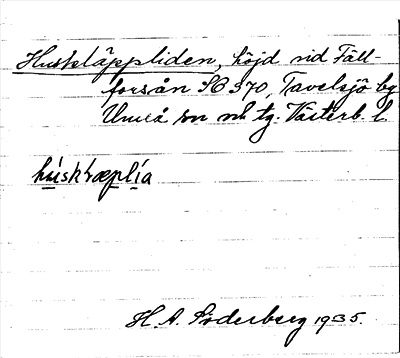 Huskläppliden, höjd vid Fäll-
forsån SC 370, Tavelsjö by
Umeå sn o. tg. Västerb. l.
húsklæplía
H. A. Söderberg 1935.